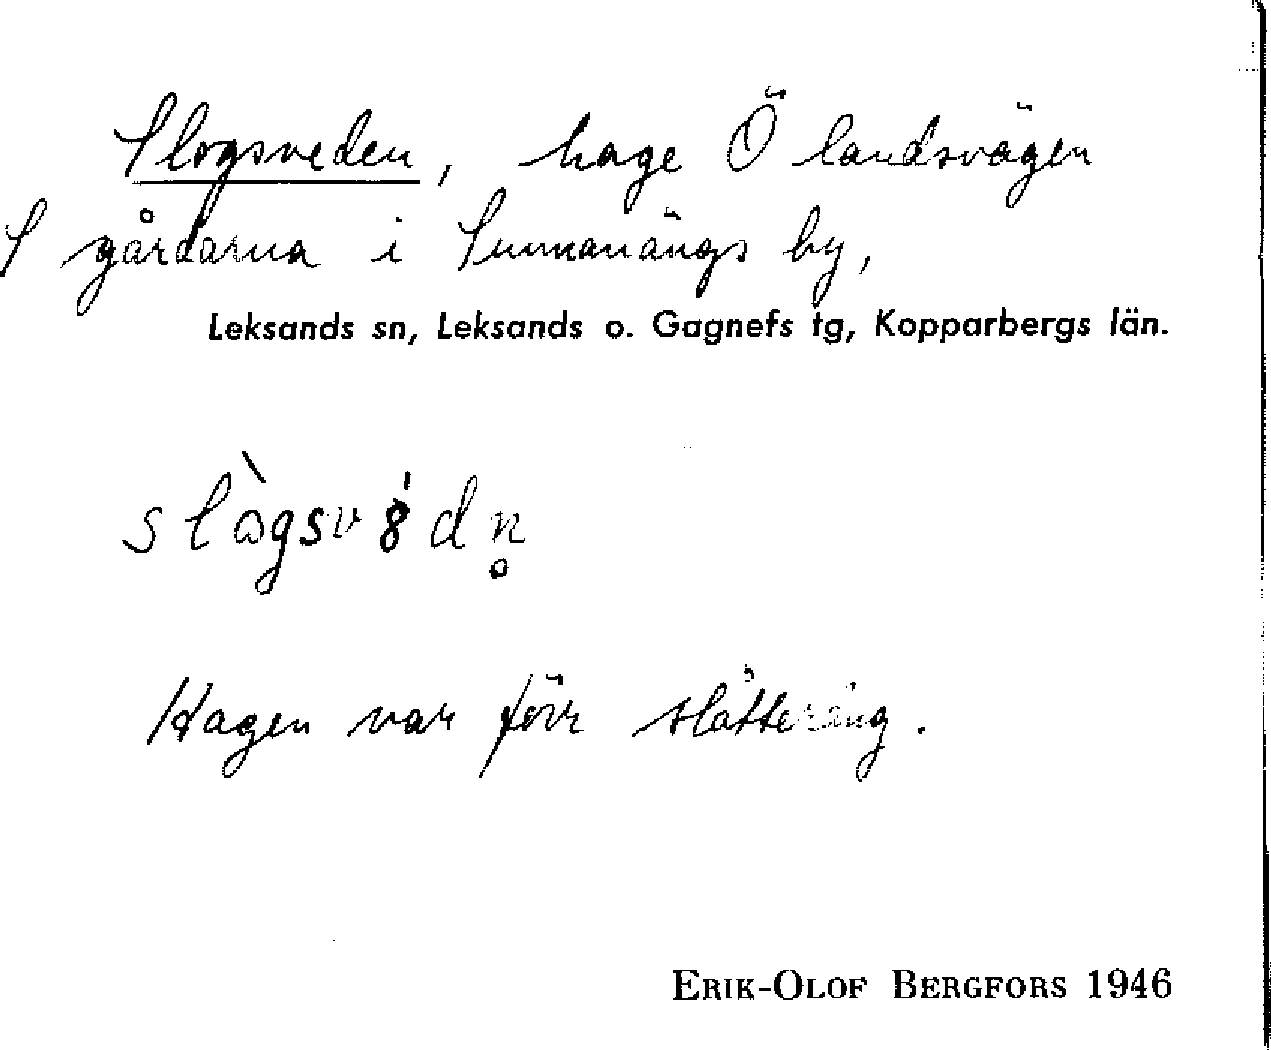 Slogsveden, hage Ö landsvägen
S gårdarna i Sunnanängs by,
Leksands sn, Leksands o. Gagnefs tg, Kopparbergs län.
Hagen var förr slåtteräng.
ERIK-OLOF BERGFORS 1946